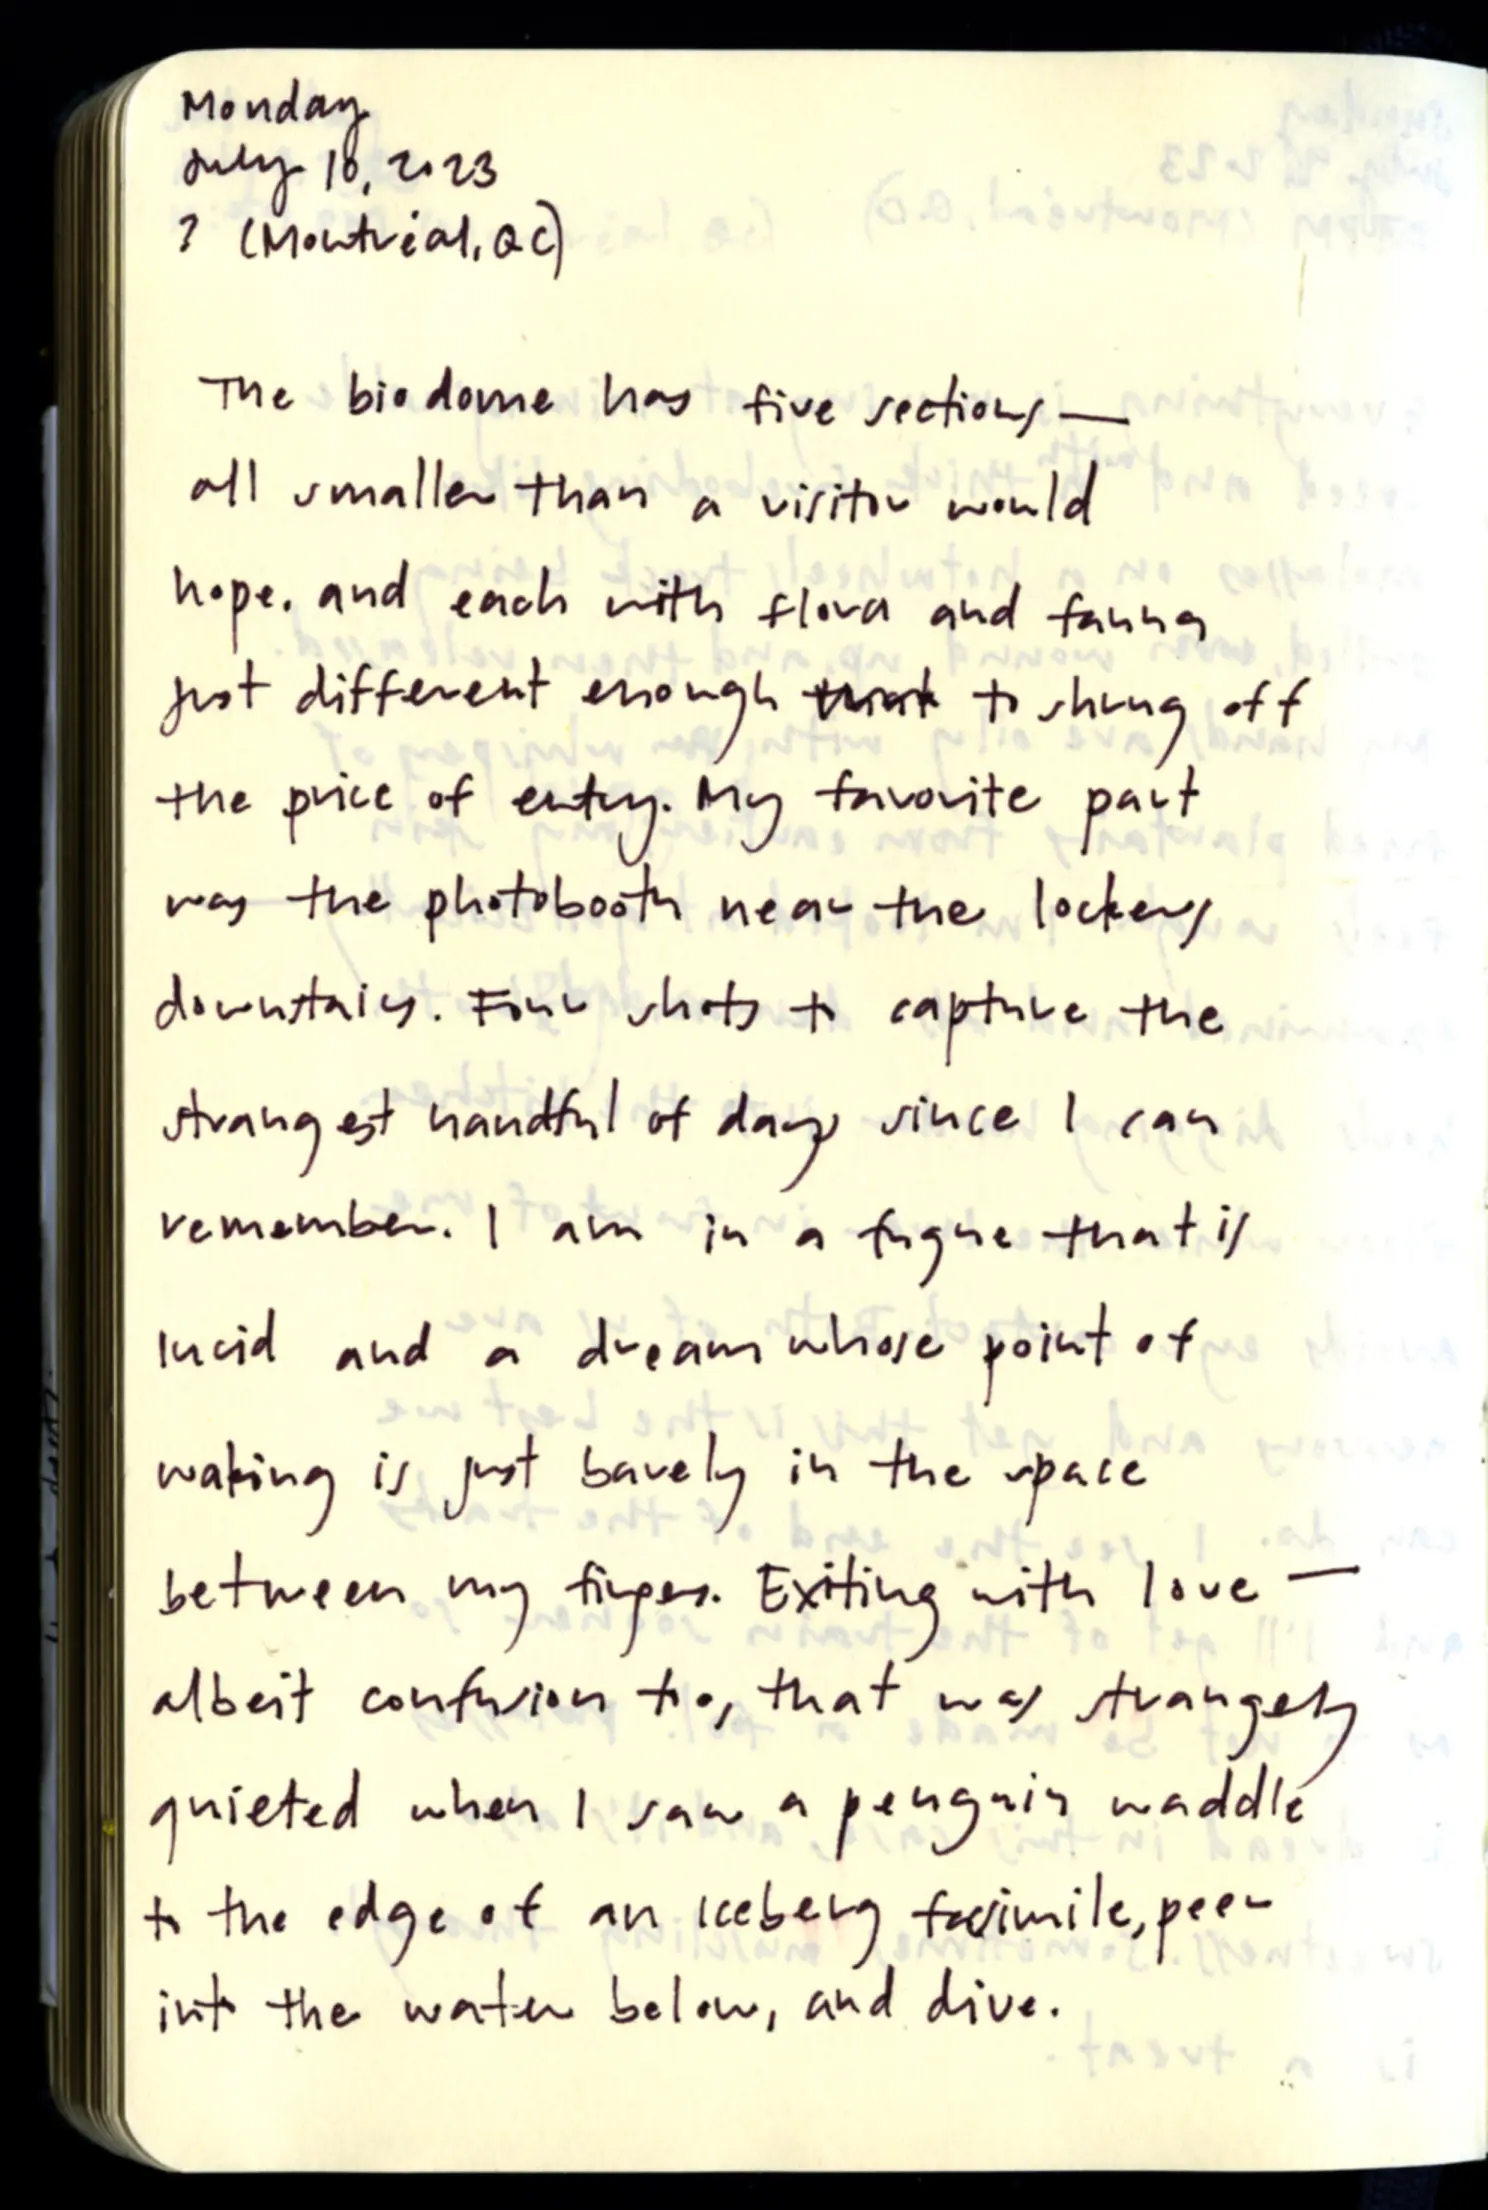 Monday
July 10, 2023
? (Montréal, QC)
The biodome has five sections —
all smaller than a visitor would
hope, and each with flora and fauna
just different enough to shrug off
the price of entry. My favorite part
was the photobooth near the lockers
downstairs. Four shots to capture the
strangest handful of days since I can
remember. I am in a fugue that is
lucid and a dream whose point of
waking is just barely in the space
between my fingers. Exiting with love —
albeit confusion too, that was strangely
quieted when I saw a penguin waddle
to the edge of an iceberg facsimile, peer
into the water below, and dive.